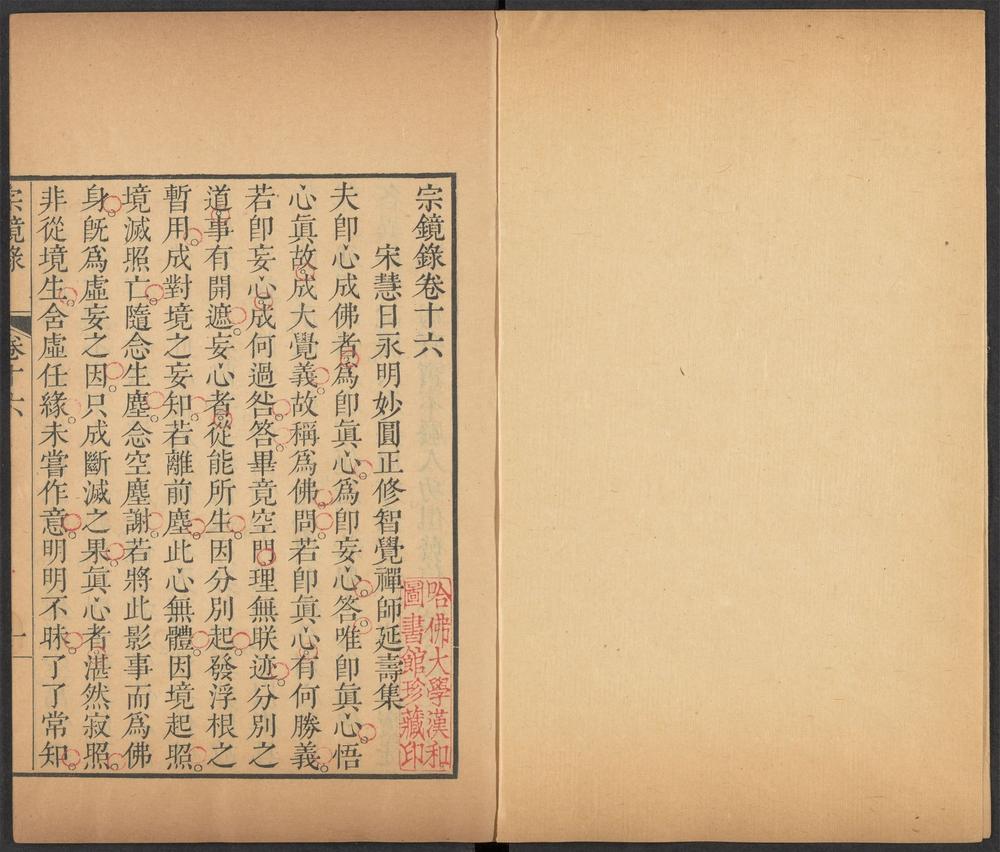 宗鏡錄卷十六
宋慧日永明妙圓正修智覺禪師延壽集
夫卽心成佛者。爲卽眞心。爲卽妄心。答。唯卽眞心。悟
心眞故。成大覺義。故稱爲佛。問。若卽眞心。有何勝義。
若卽妄心。成何過咎。答。畢竟空門。理無联迹。分別之
道。事有開遮。妄心者。從能所生。因分別起。發浮根之
暫用。成對境之妄知。若離前塵。此心無體。因境起照。
境滅照亡。隨念生塵。念空塵謝。若將此影事而爲佛
身。旣爲虛妄之因。只成斷滅之果。眞心者。湛然寂照。
非從境生。含虛任緣。未嘗作意。明明不昧。了了常知。
宗鏡錄 卷十六 一
哈佛大學漢和
圖書館珍藏印